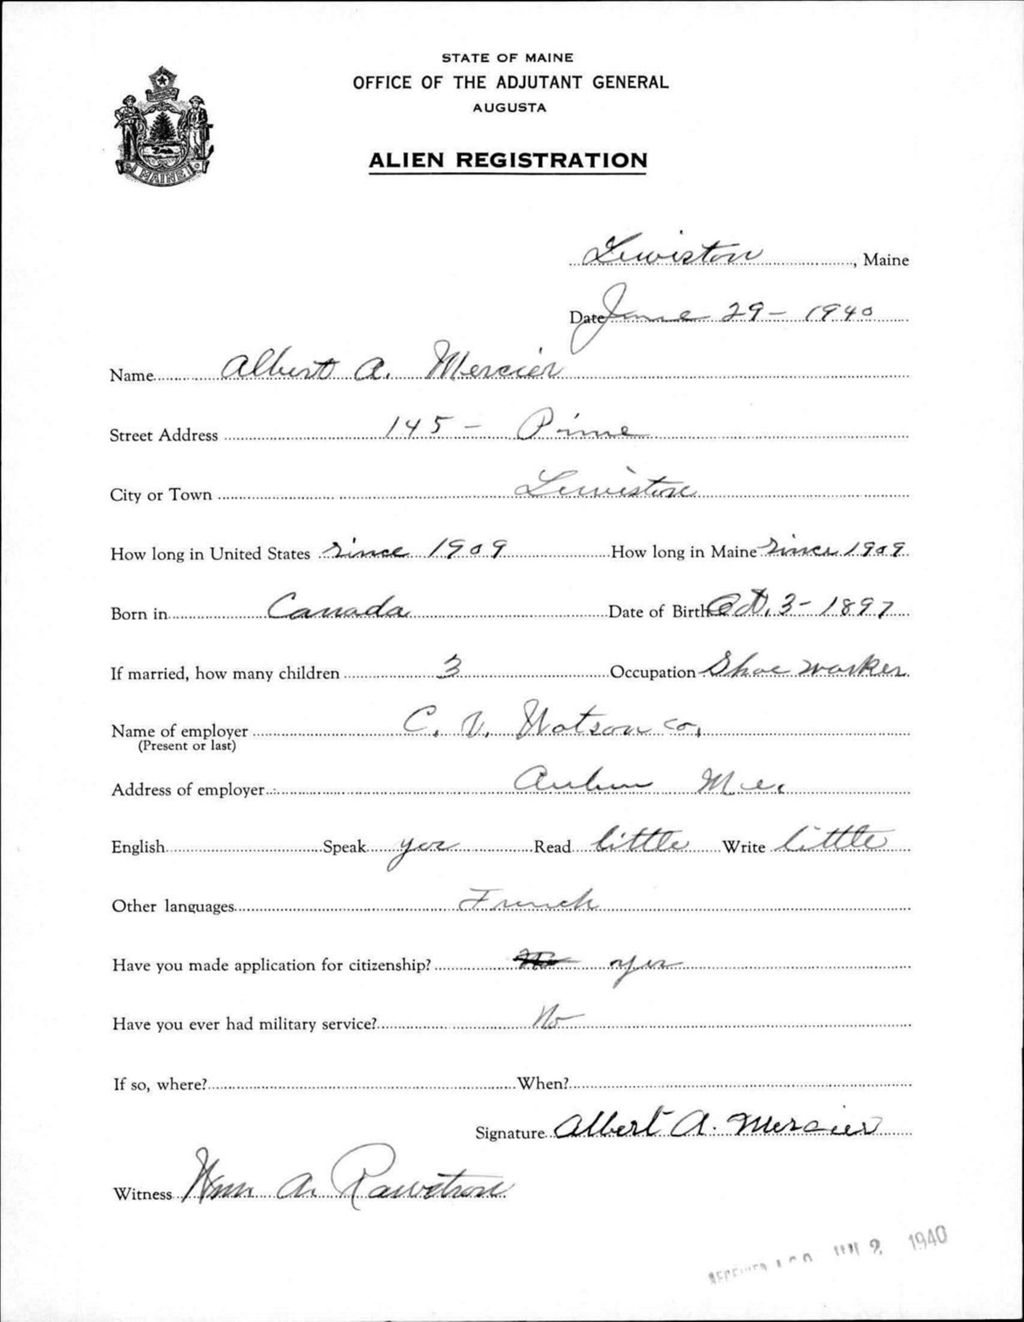 STATE OF MAINE
OFFICE OF THE ADJUTANT GENERAL
AUGUSTA
ALIEN REGISTRATION
MAINE
Lewiston, Maine
Date June 29 - 1940
Name Albert A. Mercier
Street Address 145 - Pine
City or Town Lewiston
How long in United States since 1909 How long in Maine since 1909
Born in Canada Date of Birth Oct. 3 - 1897
If married, how many children 3 Occupation Shoe worker
Name of employer C. V. Watson Co.
(Present or last)
Address of employer Auburn Me.
English Speak yes Read little Write little
Other languages French
Have you made application for citizenship? No yes
Have you ever had military service? No
If so, where? When?
Signature Albert A. Mercier
Witness Wm A. Rawstron
RECEIVED A.G.O. 2 1940